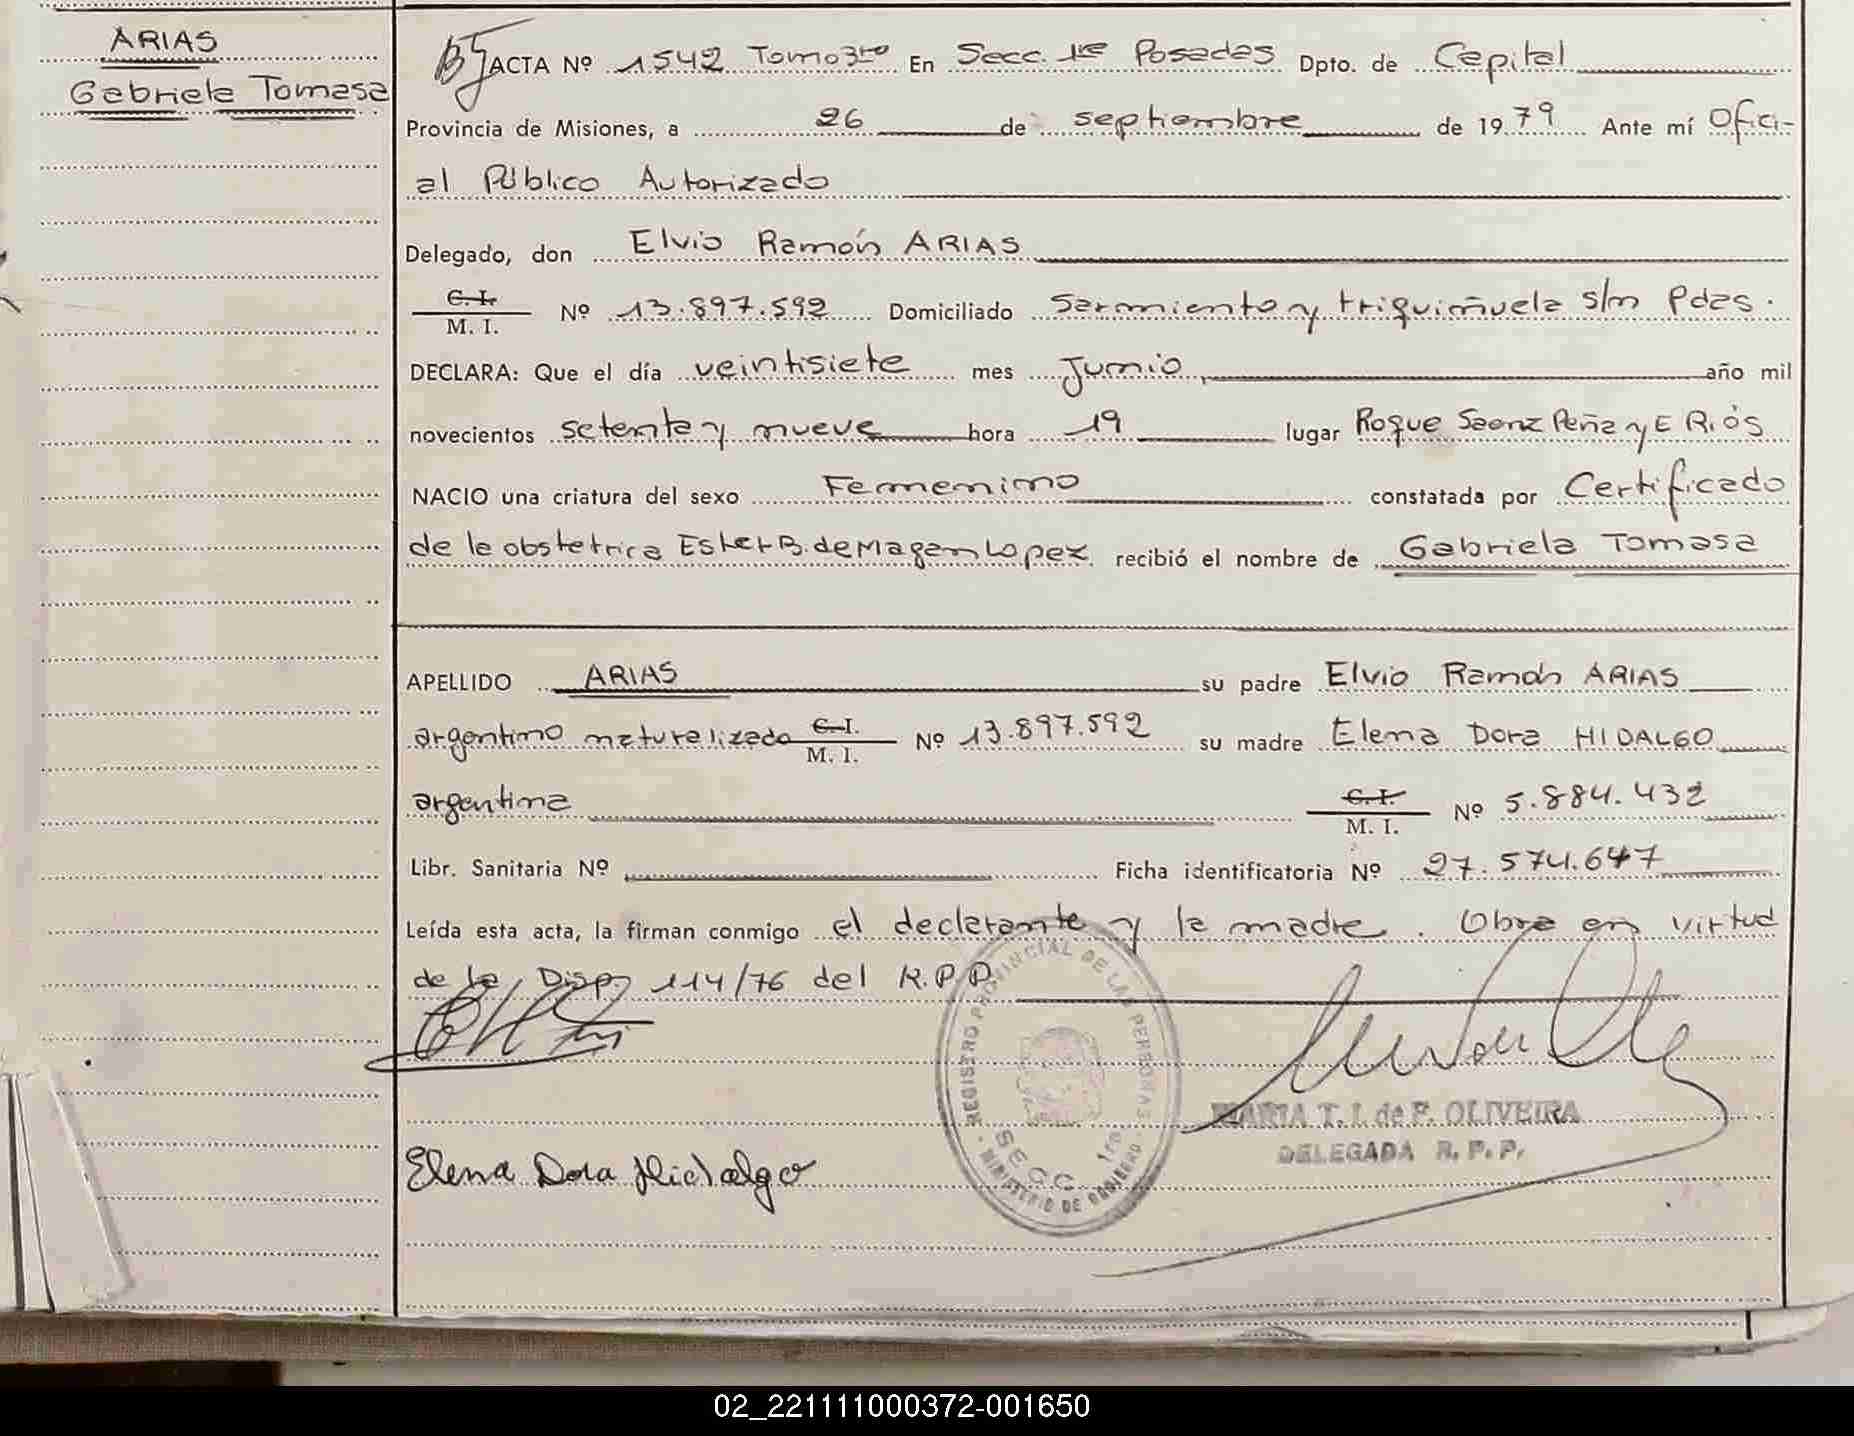 ARIAS
Gabriela Tomasa
ACTA Nº 1542 Tomo 3ero En Secc. 1re Posadas Dpto. de Capital
Provincia de Misiones, a 26 de septiembre de 1979 Ante mí Ofici-
al Público Autorizado
Delegado, don Elvio Ramón ARIAS
C. I.
M. I. Nº 13.897.592 Domiciliado Sarmiento y triquiñuela s/n Pdas.
DECLARA: Que el día veintisiete mes Junio, año mil
novecientos setenta y nueve hora 19 lugar Roque Saenz Peña y E Rios
NACIO una criatura del sexo Femenino constatada por Certificado
de la obstetrica Ester B. de Magan Lopez recibió el nombre de Gabriela Tomasa
APELLIDO ARIAS su padre Elvio Ramón ARIAS
argentino naturalizado C. I. Nº 13.897.592 su madre Elena Dora HIDALGO
M. I.
argentina C. I. Nº 5.884.432
M. I.
Libr. Sanitaria Nº Ficha identificatoria Nº 27.574.647
Leída esta acta, la firman conmigo el declarante y la madre. Obra en virtud
de la Disp. 114/76 del R.P.P.
REGISTRO PROVINCIAL DE LAS PERSONAS
SECC. 1ra
MINISTERIO DE GOBIERNO
MARIA T. I. de F. OLIVEIRA
DELEGADA R. P. P.
Elena Dora Hidalgo
02_221111000372-001650